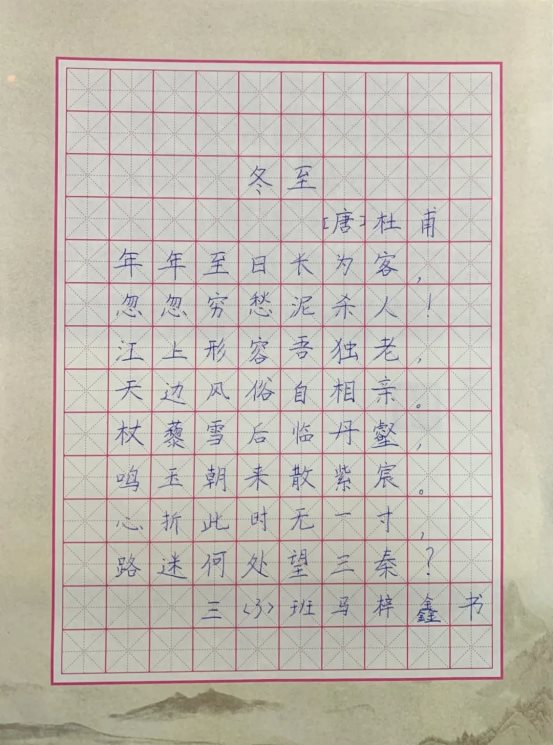 冬至
[唐]杜甫
年年至日长为客，
忽忽穷愁泥杀人！
江上形容吾独老，
天边风俗自相亲。
杖藜雪后临丹壑，
鸣玉朝来散紫宸。
心折此时无一寸，
路迷何处望三秦？
三〈3〉班马梓鑫书